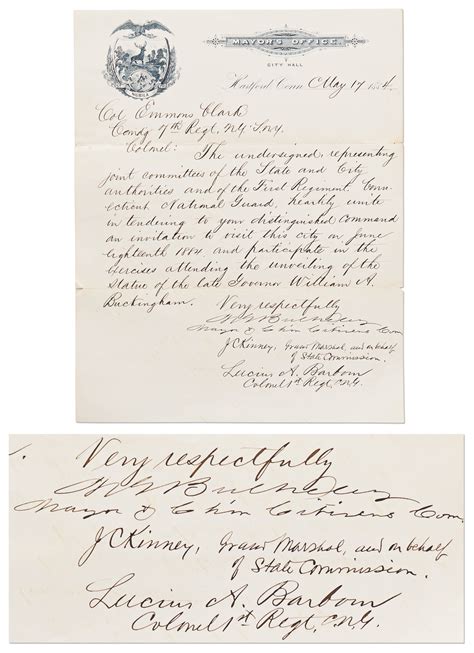 MAYOR'S OFFICE,
CITY HALL
Hartford Conn May 17 1884
Col Emmons Clark
Comdg 7th Regt. N.G.S.N.Y.
Colonel: The undersigned, representing
joint committees of the State and City
authorities and of the First Regiment, Conn-
ecticut National Guard, heartily unite
in tendering to your distinguished command
an invitation to visit this city on June
eighteenth 1884 and participate in the
exercises attending the unveiling of the
Statue of the late Govornor William A.
Buckingham.
Very respectfully
Mayor & Chm Citizens Com
J C Kinney, Grand Marshal, and on behalf
of State Commission.
Lucius A. Barbour
Colonel 1st Regt. C.N.G.
Very respectfully
Mayor & Chm Citizens Com
J C Kinney, Grand Marshal, and on behalf
of State Commission.
Lucius A. Barbour
Colonel 1st Regt, C.N.G.